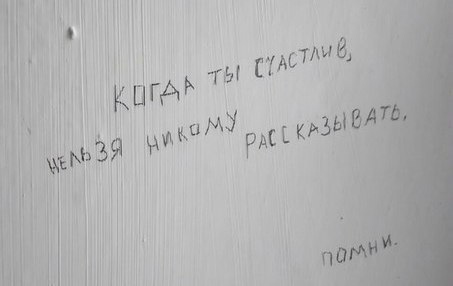 КОГДА ТЫ СЧАСТЛИВ,
НЕЛЬЗЯ НИКОМУ РАССКАЗЫВАТЬ.
ПОМНИ.